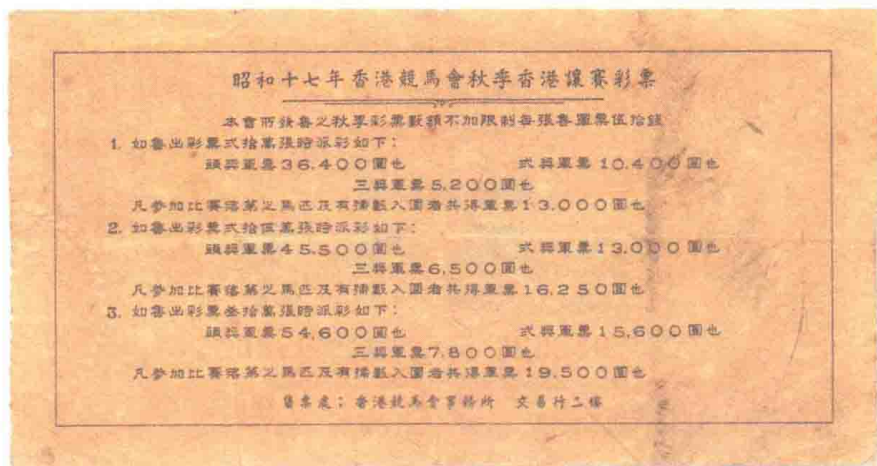 昭和十七年香港競馬會秋季香港讓賽彩票
本會所發售之秋季彩票數額不加限制每張售軍票伍拾錢
1. 如售出彩票式拾萬張時派彩如下：
頭奬軍票36,400圓也 式奬軍票10,400圓也
三奬軍票5,200圓也
凡參加比賽落第之馬匹及有搞數入圍者共得軍票13,000圓也
2. 如售出彩票式拾伍萬張時派彩如下：
頭奬軍票45,500圓也 式奬軍票13,000圓也
三奬軍票6,500圓也
凡參加比賽落第之馬匹及有搞數入圍者共得軍票16,250圓也
3. 如售出彩票叁拾萬張時派彩如下：
頭奬軍票54,600圓也 式奬軍票15,600圓也
三奬軍票7,800圓也
凡參加比賽落第之馬匹及有搞數入圍者共得軍票19,500圓也
售票處：香港競馬會事務所 交易行二樓